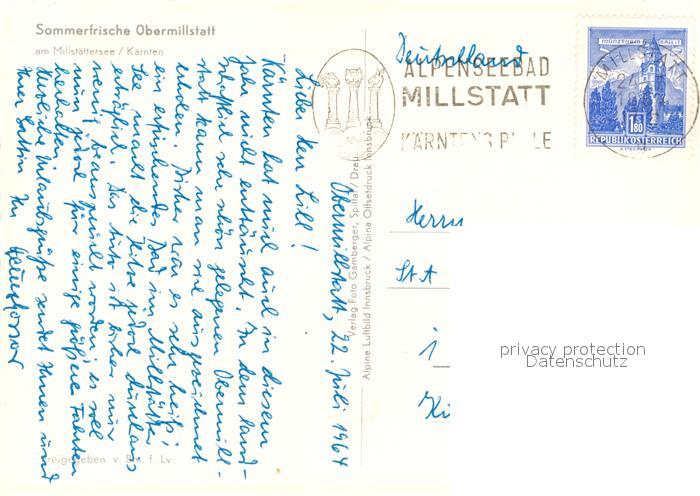 Sommerfrische Obermillstatt
am Millstättersee / Kärnten
Deutschland
ALPENSEEBAD
MILLSTATT
KÄRNTENS P LE
MÜNZTURM HALL I.T.
1.80
REPUBLIK ÖSTERREICH
MILLSTATT
Obermillstatt, 22. Juli 1964
Lieber Herr Lill!
Kärnten hat mich auch in diesem
Jahr nicht enttäuscht. In dem land-
schaftlich sehr schön gelegenen Obermill-
statt kann man sich ausgezeichnet
erholen. Bisher war es sehr heiß;
ein erfrischendes Bad im Millstätter
See macht die Hitze jedoch durchaus
erträglich. Das Auto ist bisher nur
wenig beansprucht worden; es soll
nun jedoch für einige größere Fahrten
herhalten.
Herzliche Urlaubsgrüße sendet Ihnen und
Ihrer Gattin Ihr
Verlag Foto Gamberger, Spittal / Drau
Alpine Luftbild Innsbruck / Alpina Offsetdruck Innsbruck
Herrn
St A
i
Ki
privacy protection
Datenschutz
reigegeben v. B. M. f. Lv.